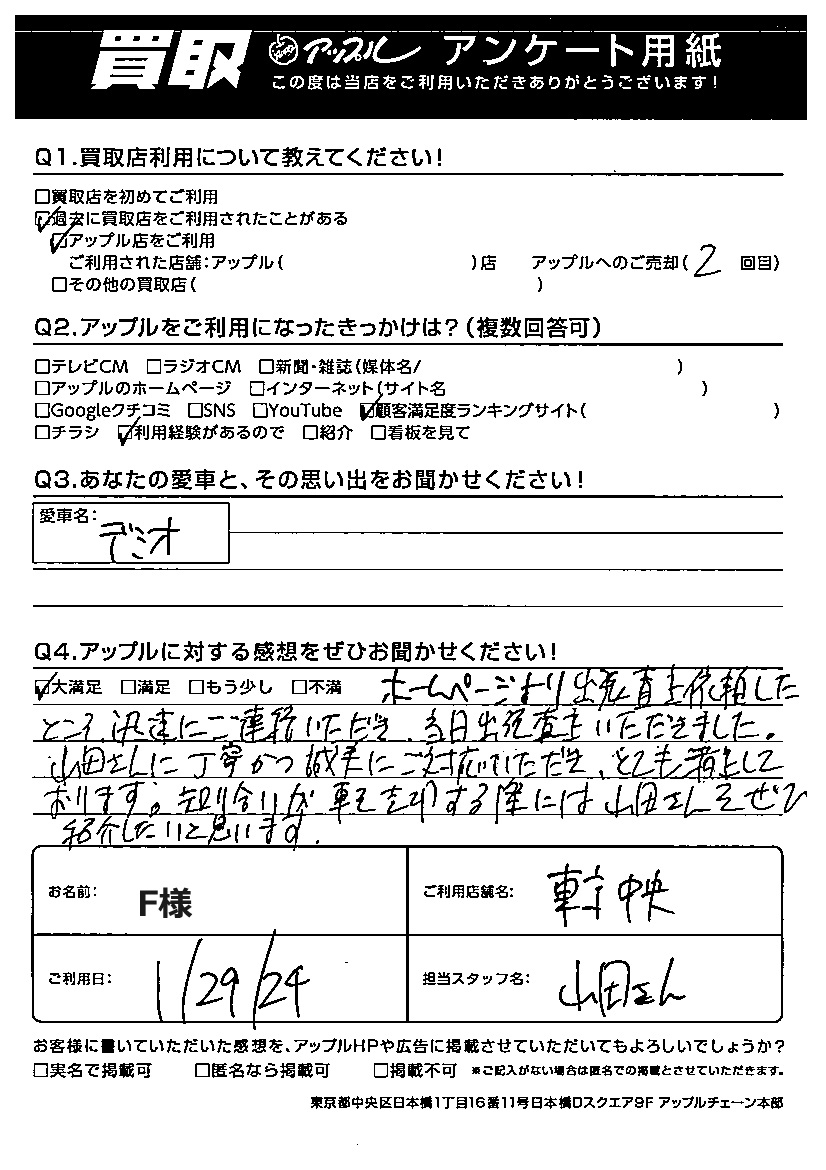 買取 アップル アンケート用紙
この度は当店をご利用いただきありがとうございます!
Q1.買取店利用について教えてください!
□買取店を初めてご利用
☑過去に買取店をご利用されたことがある
☑アップル店をご利用
ご利用された店舗:アップル( )店 アップルへのご売却( 2 回目)
□その他の買取店( )
Q2.アップルをご利用になったきっかけは?(複数回答可)
□テレビCM □ラジオCM □新聞・雑誌(媒体名/ )
□アップルのホームページ □インターネット(サイト名 )
□Googleクチコミ □SNS □YouTube ☑顧客満足度ランキングサイト( )
□チラシ ☑利用経験があるので □紹介 □看板を見て
Q3.あなたの愛車と、その思い出をお聞かせください!
愛車名:
デミオ
Q4.アップルに対する感想をぜひお聞かせください!
☑大満足 □満足 □もう少し □不満 ホームページより出張査定依頼した
ところ、迅速にご連絡いただき、当日出張査定いただきました。
山田さんに丁寧かつ誠実にご対応いただき、とても満足して
おります。知り合いが車を売却する際には山田さんをぜひ
紹介したいと思います。
お名前: F様 ご利用店舗名: 東京中央
ご利用日: 1/29/24 担当スタッフ名: 山田さん
お客様に書いていただいた感想を、アップルHPや広告に掲載させていただいてもよろしいでしょうか?
□実名で掲載可 □匿名なら掲載可 □掲載不可 ※ご記入がない場合は匿名での掲載とさせていただきます。
東京都中央区日本橋1丁目16番11号日本橋Dスクエア9F アップルチェーン本部